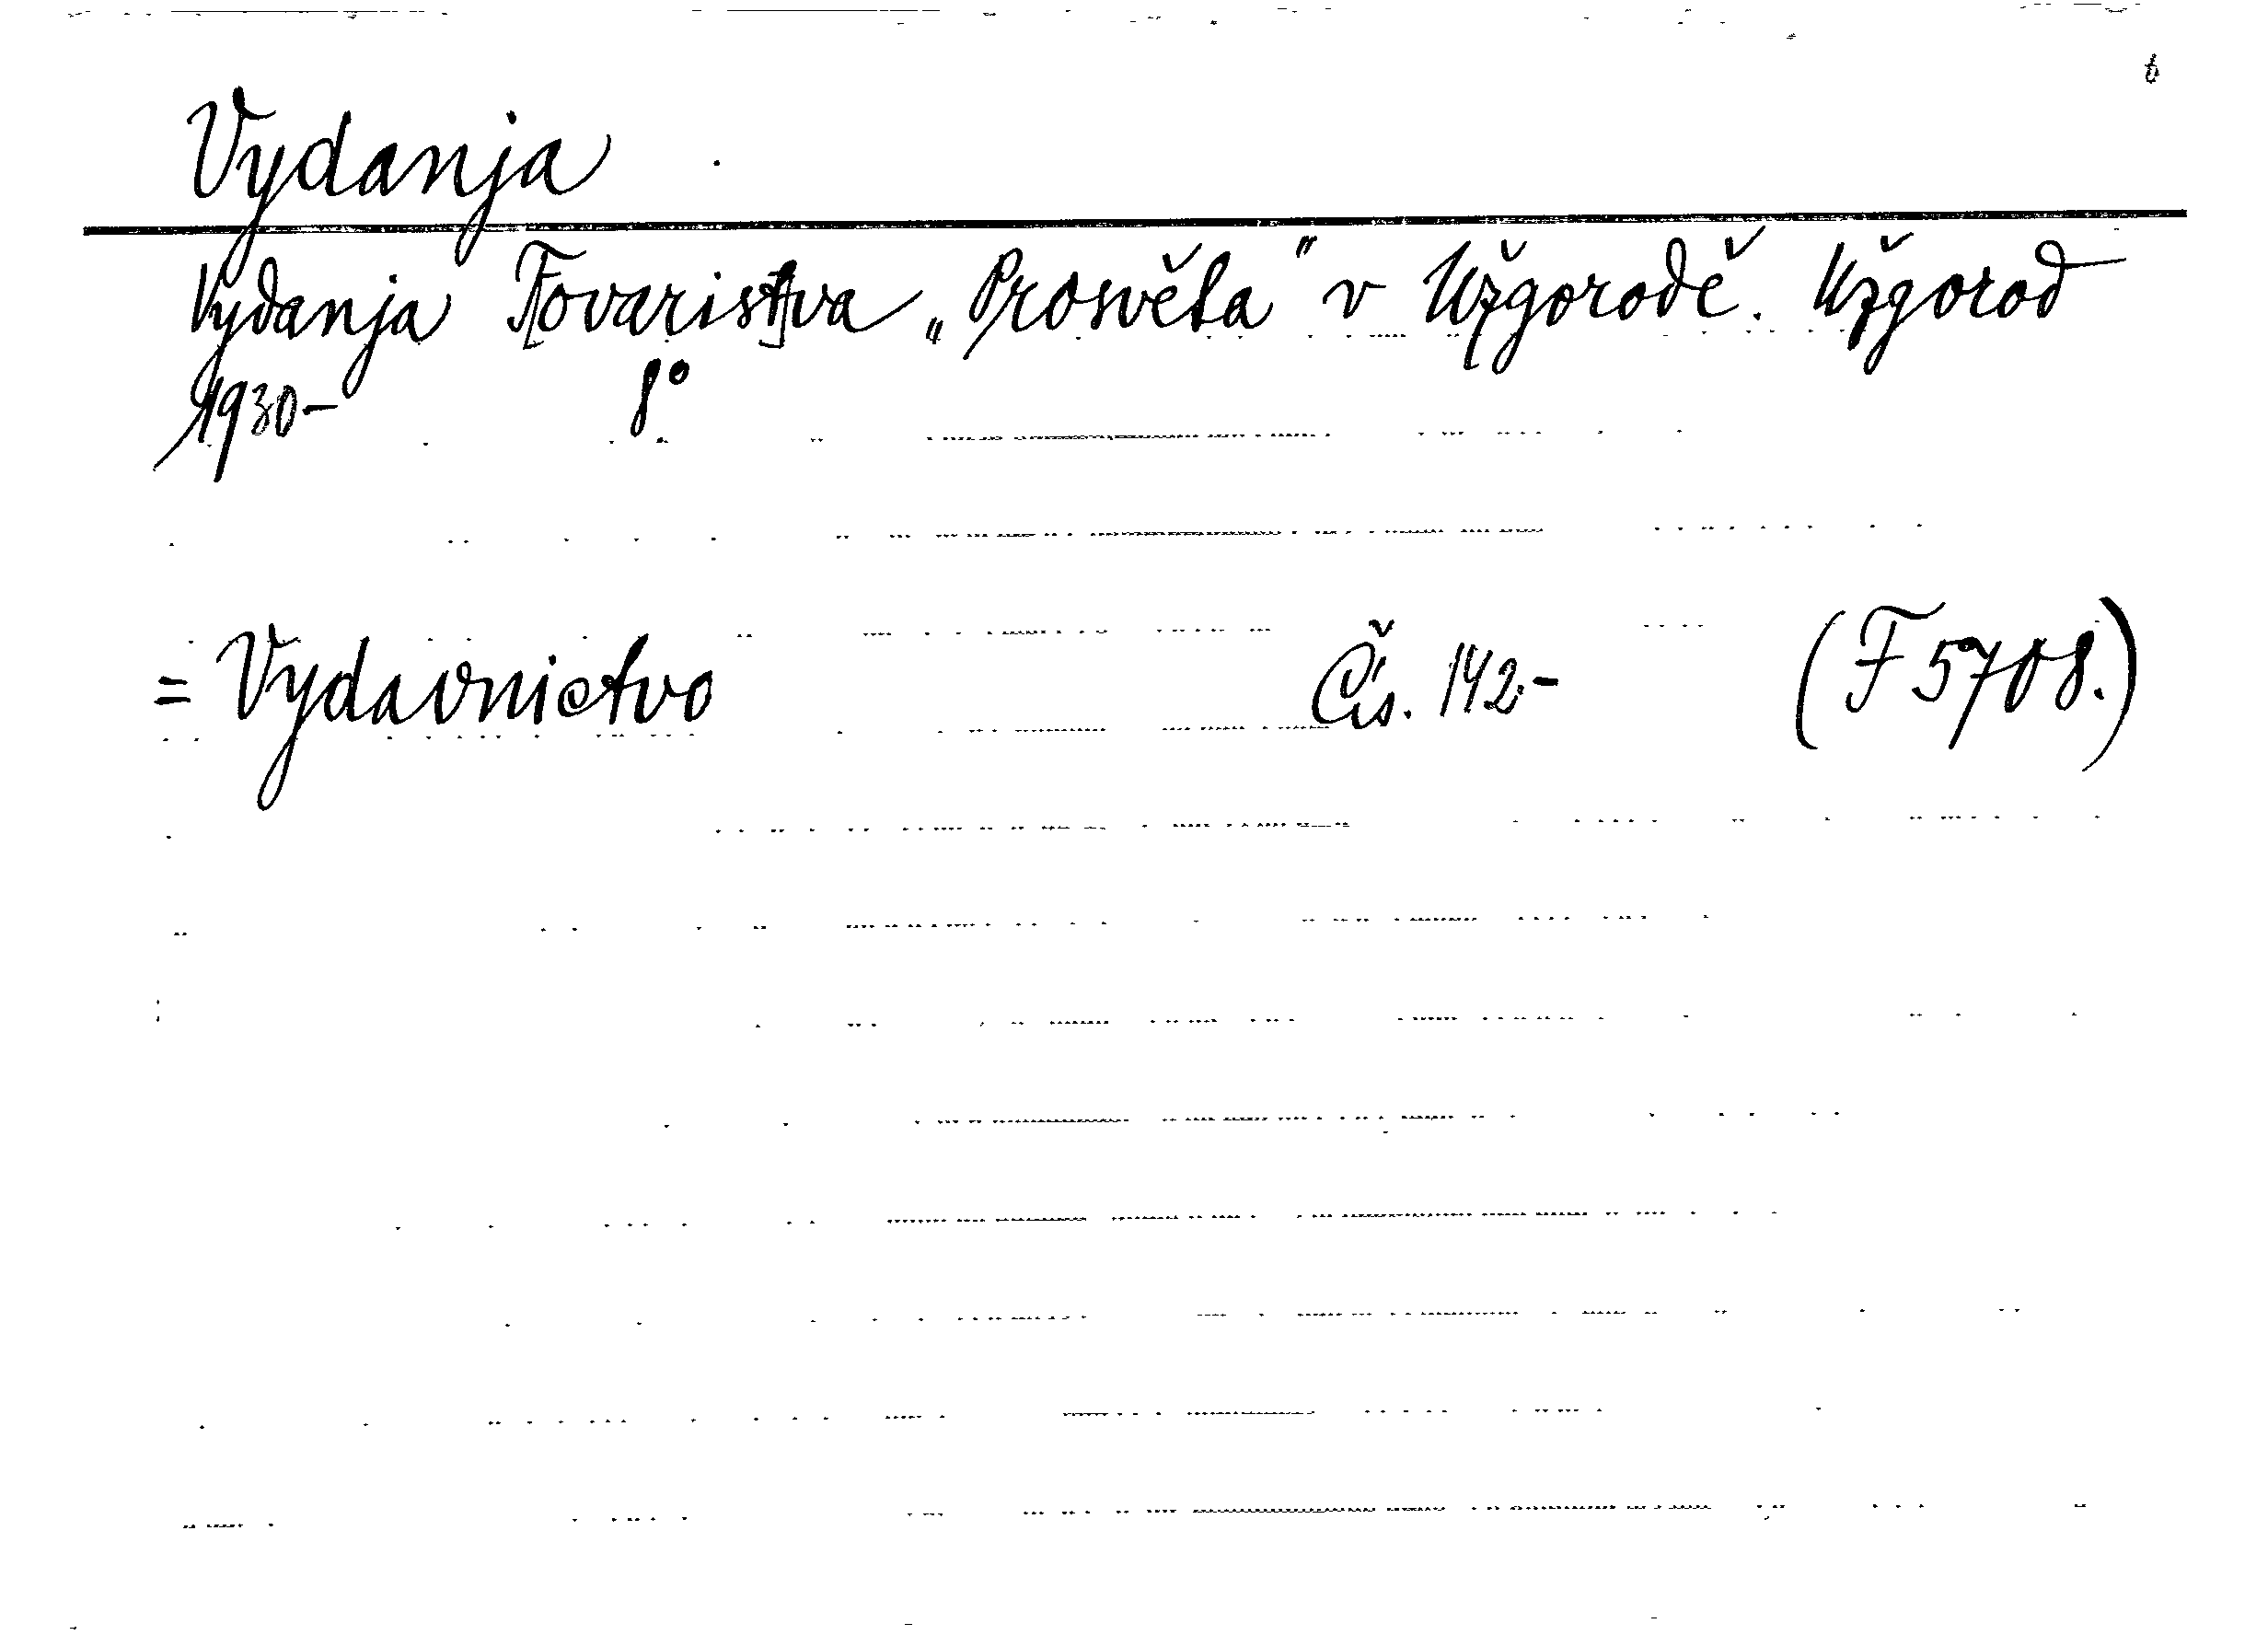 Vydanja
Vydanja Tovaristva „Prosvěta" v Užgorodě. Užgorod
1930- 8°
= Vydavnictvo Čís. 142.- (F 5708.)